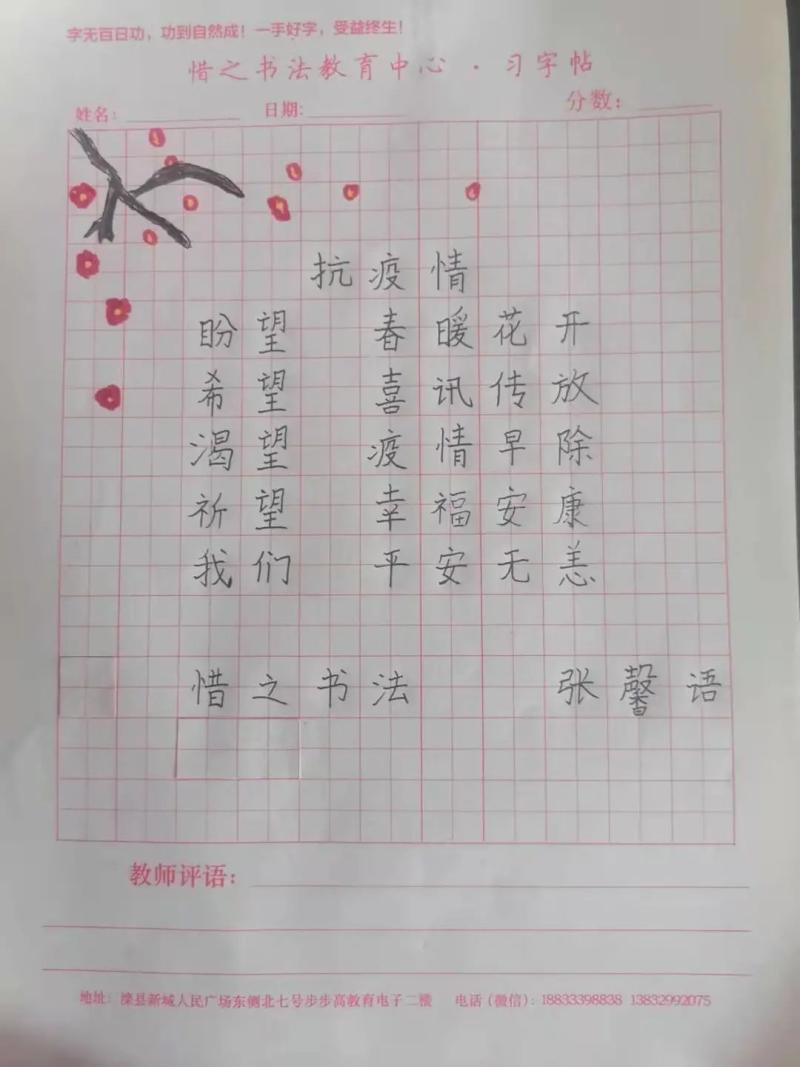 字无百日功，功到自然成！一手好字，受益终生！
惜之书法教育中心·习字帖
姓名： 日期： 分数：
抗疫情
盼望 春暖花开
希望 喜讯传放
渴望 疫情早除
祈望 幸福安康
我们 平安无恙
惜之书法 张馨语
教师评语：
地址：滦县新城人民广场东侧北七号步步高教育电子二楼 电话（微信）：18833398838 13832992075